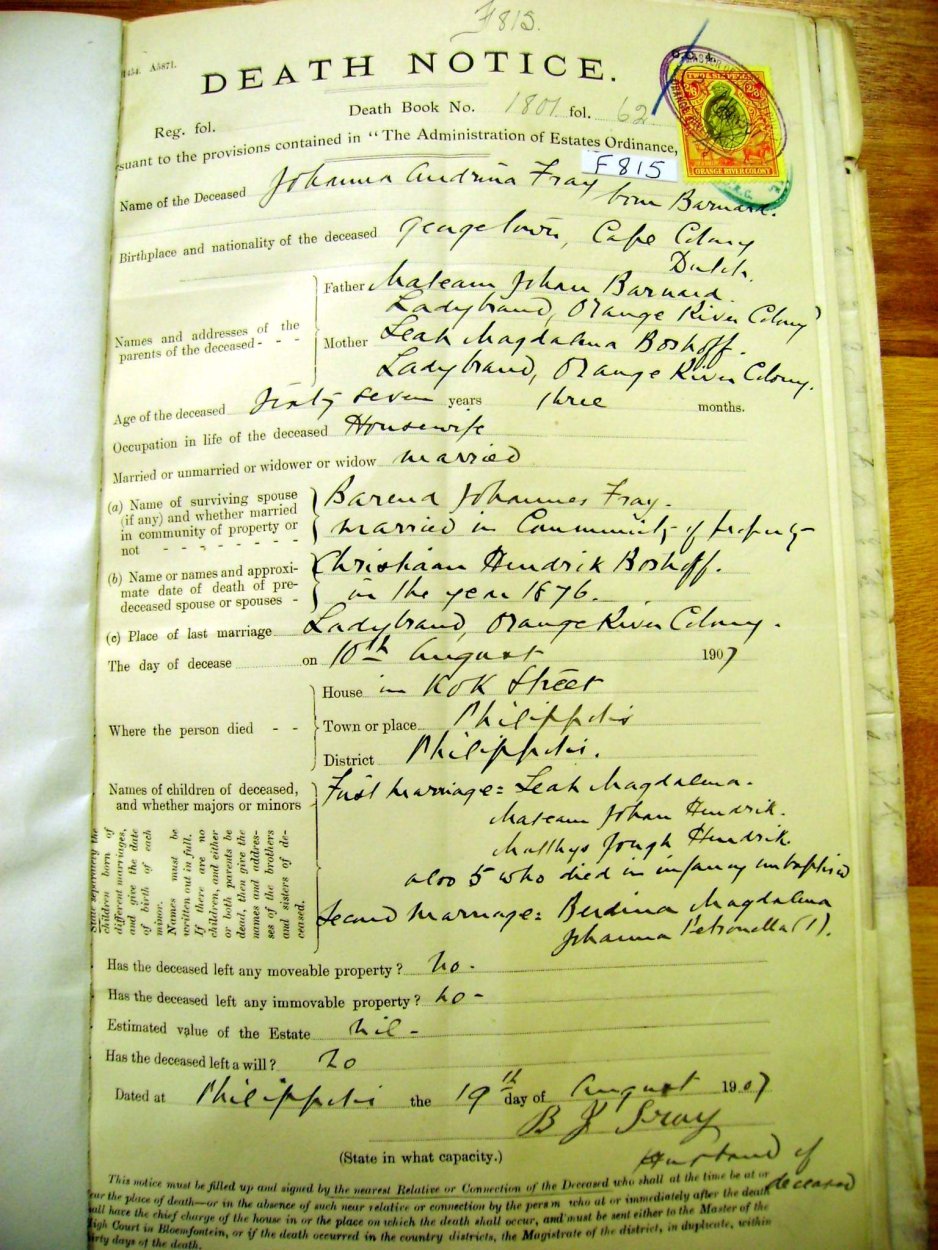 F815.
1454. A5871.
DEATH NOTICE.
Death Book No. 1801 fol. 62
Reg. fol.
TWO & SIX PENCE
ORANGE RIVER COLONY
suant to the provisions contained in "The Administration of Estates Ordinance,
F815
Name of the Deceased Johanna Andrina Fray born Barnard.
Birthplace and nationality of the deceased Georgetown, Cape Colony
Dutch.
Names and addresses of the parents of the deceased - - -
Father Mateam Johan Barnard.
Ladybrand, Orange River Colony
Mother Leah Magdalena Boshoff.
Ladybrand, Orange River Colony.
Age of the deceased sixty seven years three months.
Occupation in life of the deceased Housewife
Married or unmarried or widower or widow married
(a) Name of surviving spouse (if any) and whether married in community of property or not - - - - - -
Barend Johannes Fray.
married in Community of property
(b) Name or names and approximate date of death of predeceased spouse or spouses -
Christiaan Hendrik Boshoff.
in the year 1876.
(c) Place of last marriage Ladybrand, Orange River Colony.
The day of decease on 10th August 1907
Where the person died - -
House in Kok Street
Town or place Philippolis
District Philippolis.
Names of children of deceased, and whether majors or minors
State separately the children born of different marriages, and give the date of birth of each minor. Names must be written out in full. If there are no children, and either or both parents be dead, then give the names and addresses of the brothers and sisters of deceased.
First marriage = Leah Magdalena.
Mateam Johan Hendrik.
Matthys Hendrik.
also 5 who died in infancy unbaptised
Second marriage = Berdina Magdalena
Johanna Petronella (1).
Has the deceased left any moveable property? no -
Has the deceased left any immovable property? no -
Estimated value of the Estate nil -
Has the deceased left a will? No
Dated at Philippolis the 19th day of August 1907
B J Fray
(State in what capacity.) Husband of
deceased
This notice must be filled up and signed by the nearest Relative or Connection of the Deceased who shall at the time be at or
ear the place of death—or in the absence of such near relative or connection by the person who at or immediately after the death
all have the chief charge of the house in or the place on which the death shall occur, and must be sent either to the Master of the
igh Court in Bloemfontein, or if the death occurred in the country districts, the Magistrate of the district, in duplicate, within
irty days of the death.